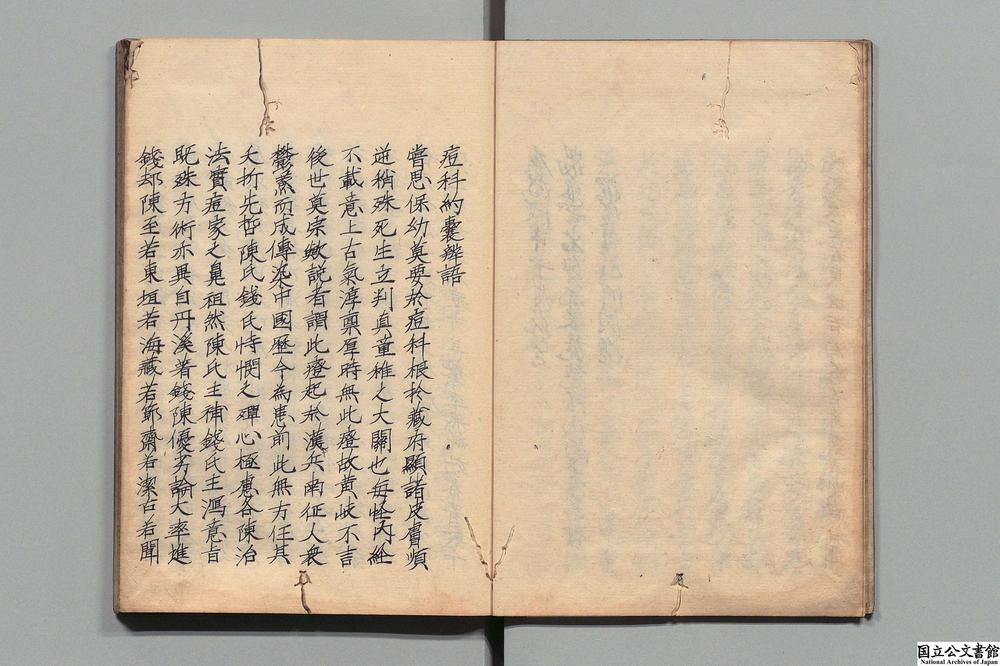 痘科約囊辨語
嘗思保幼莫要於痘科根於藏府顯諸皮膚順
逆稍殊死生立判真童稚之大關也每怪內經
不載意上古氣淳稟厚時無此證故黃岐不言
後世莫宗歟說者謂此證起於漢兵南征人衆
鬱蒸而成傳染中國歷今為患前此無方任其
夭折先哲陳氏錢氏恃憫之殫心極慮各陳治
法實痘家之鼻祖然陳氏主補錢氏主瀉意旨
既殊方術亦異自丹溪著錢陳優劣論大率進
錢却陳至若東垣若海藏若節齋若潔古若聞
国立公文書館
National Archives of Japan